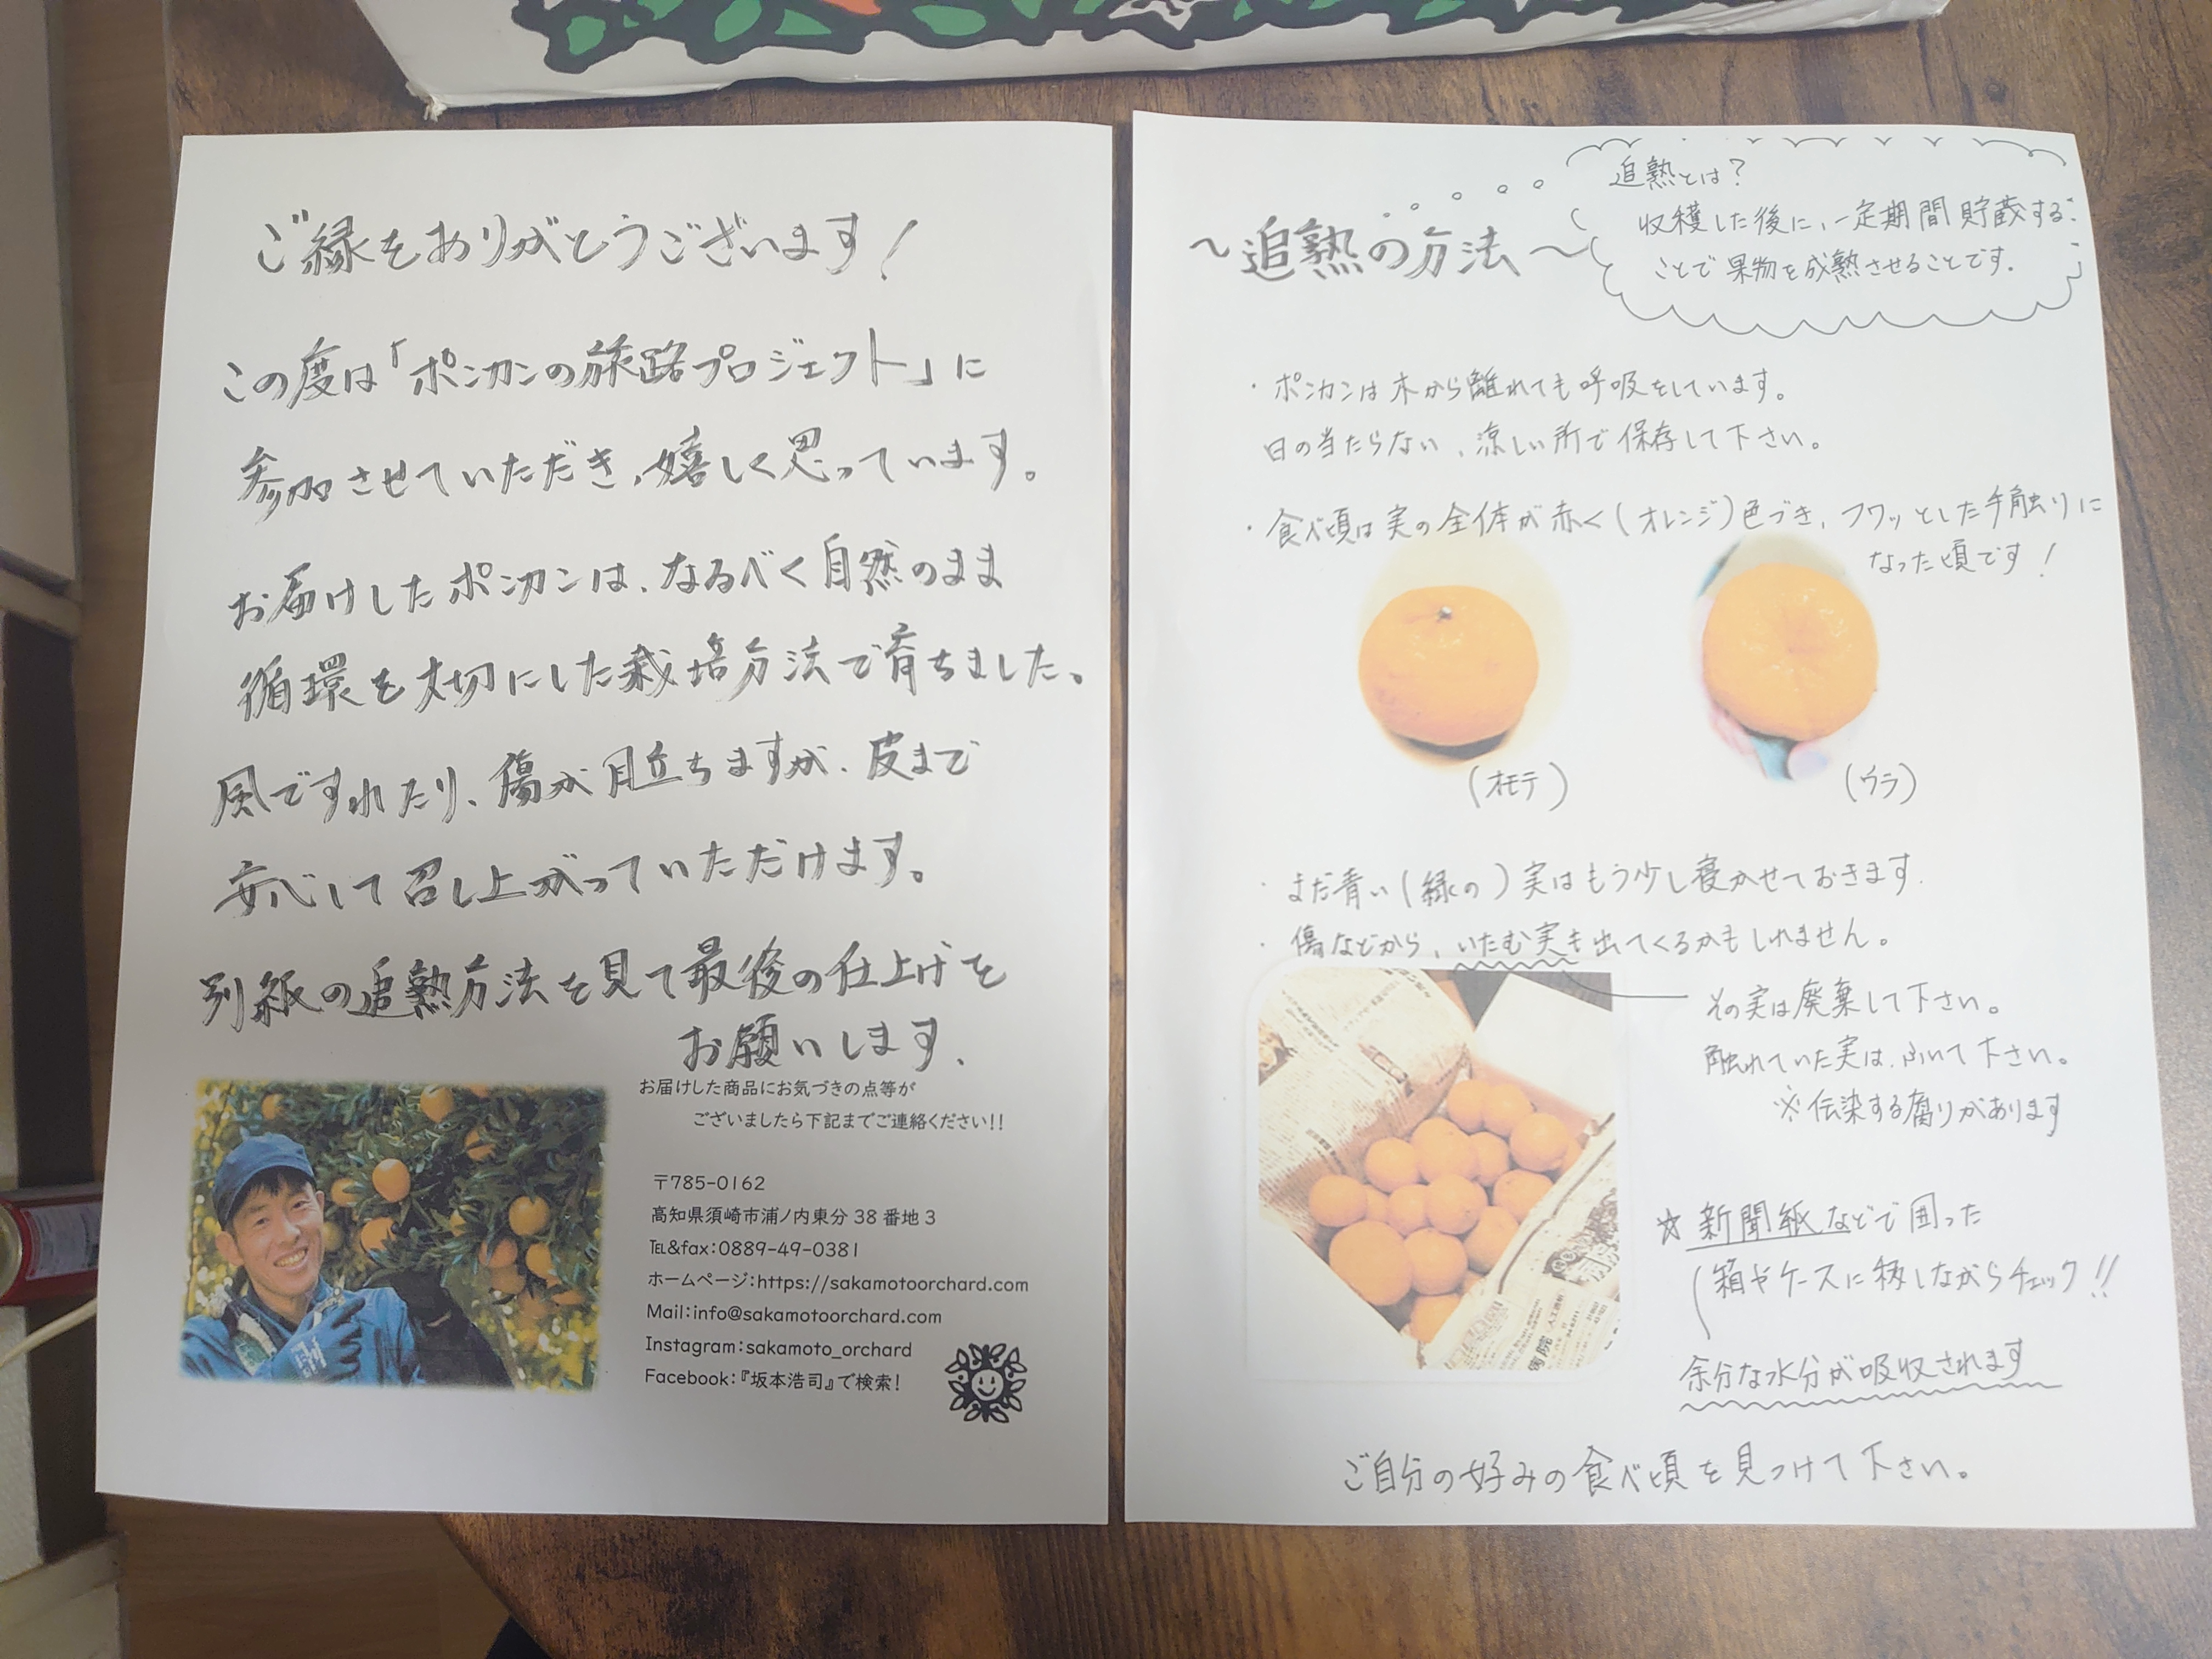 ご縁をありがとうございます!
この度は「ポンカンの旅路プロジェクト」に
参加させていただき、嬉しく思っています。
お届けしたポンカンは、なるべく自然のまま
循環を大切にした栽培方法で育ちました。
風ですれたり、傷が目立ちますが、皮まで
安心して召し上がっていただけます。
別紙の追熟方法を見て最後の仕上げを
お願いします.
お届けした商品にお気づきの点等が
ございましたら下記までご連絡ください!!
〒785-0162
高知県須崎市浦ノ内東分38番地3
℡&fax:0889-49-0381
ホームページ:https://sakamotoorchard.com
Mail:info@sakamotoorchard.com
Instagram:sakamoto_orchard
Facebook:『坂本浩司』で検索!
追熟とは?
収穫した後に、一定期間貯蔵する
ことで果物を成熟させることです.
〜追熟の方法〜
・ポンカンは木から離れても呼吸をしています。
日の当たらない、涼しい所で保存して下さい。
・食べ頃は実の全体が赤く(オレンジ)色づき、フワッとした手触りに
なった頃です!
(オモテ)
(ウラ)
・まだ青い(緑の)実はもう少し寝かせておきます.
・傷などから、いたむ実も出てくるかもしれません。
その実は廃棄して下さい。
触れていた実は、ふいて下さい。
※伝染する腐りがあります
☆新聞紙などで囲った
箱やケースに移しながらチェック!!
余分な水分が吸収されます
ご自分の好みの食べ頃を見つけて下さい。